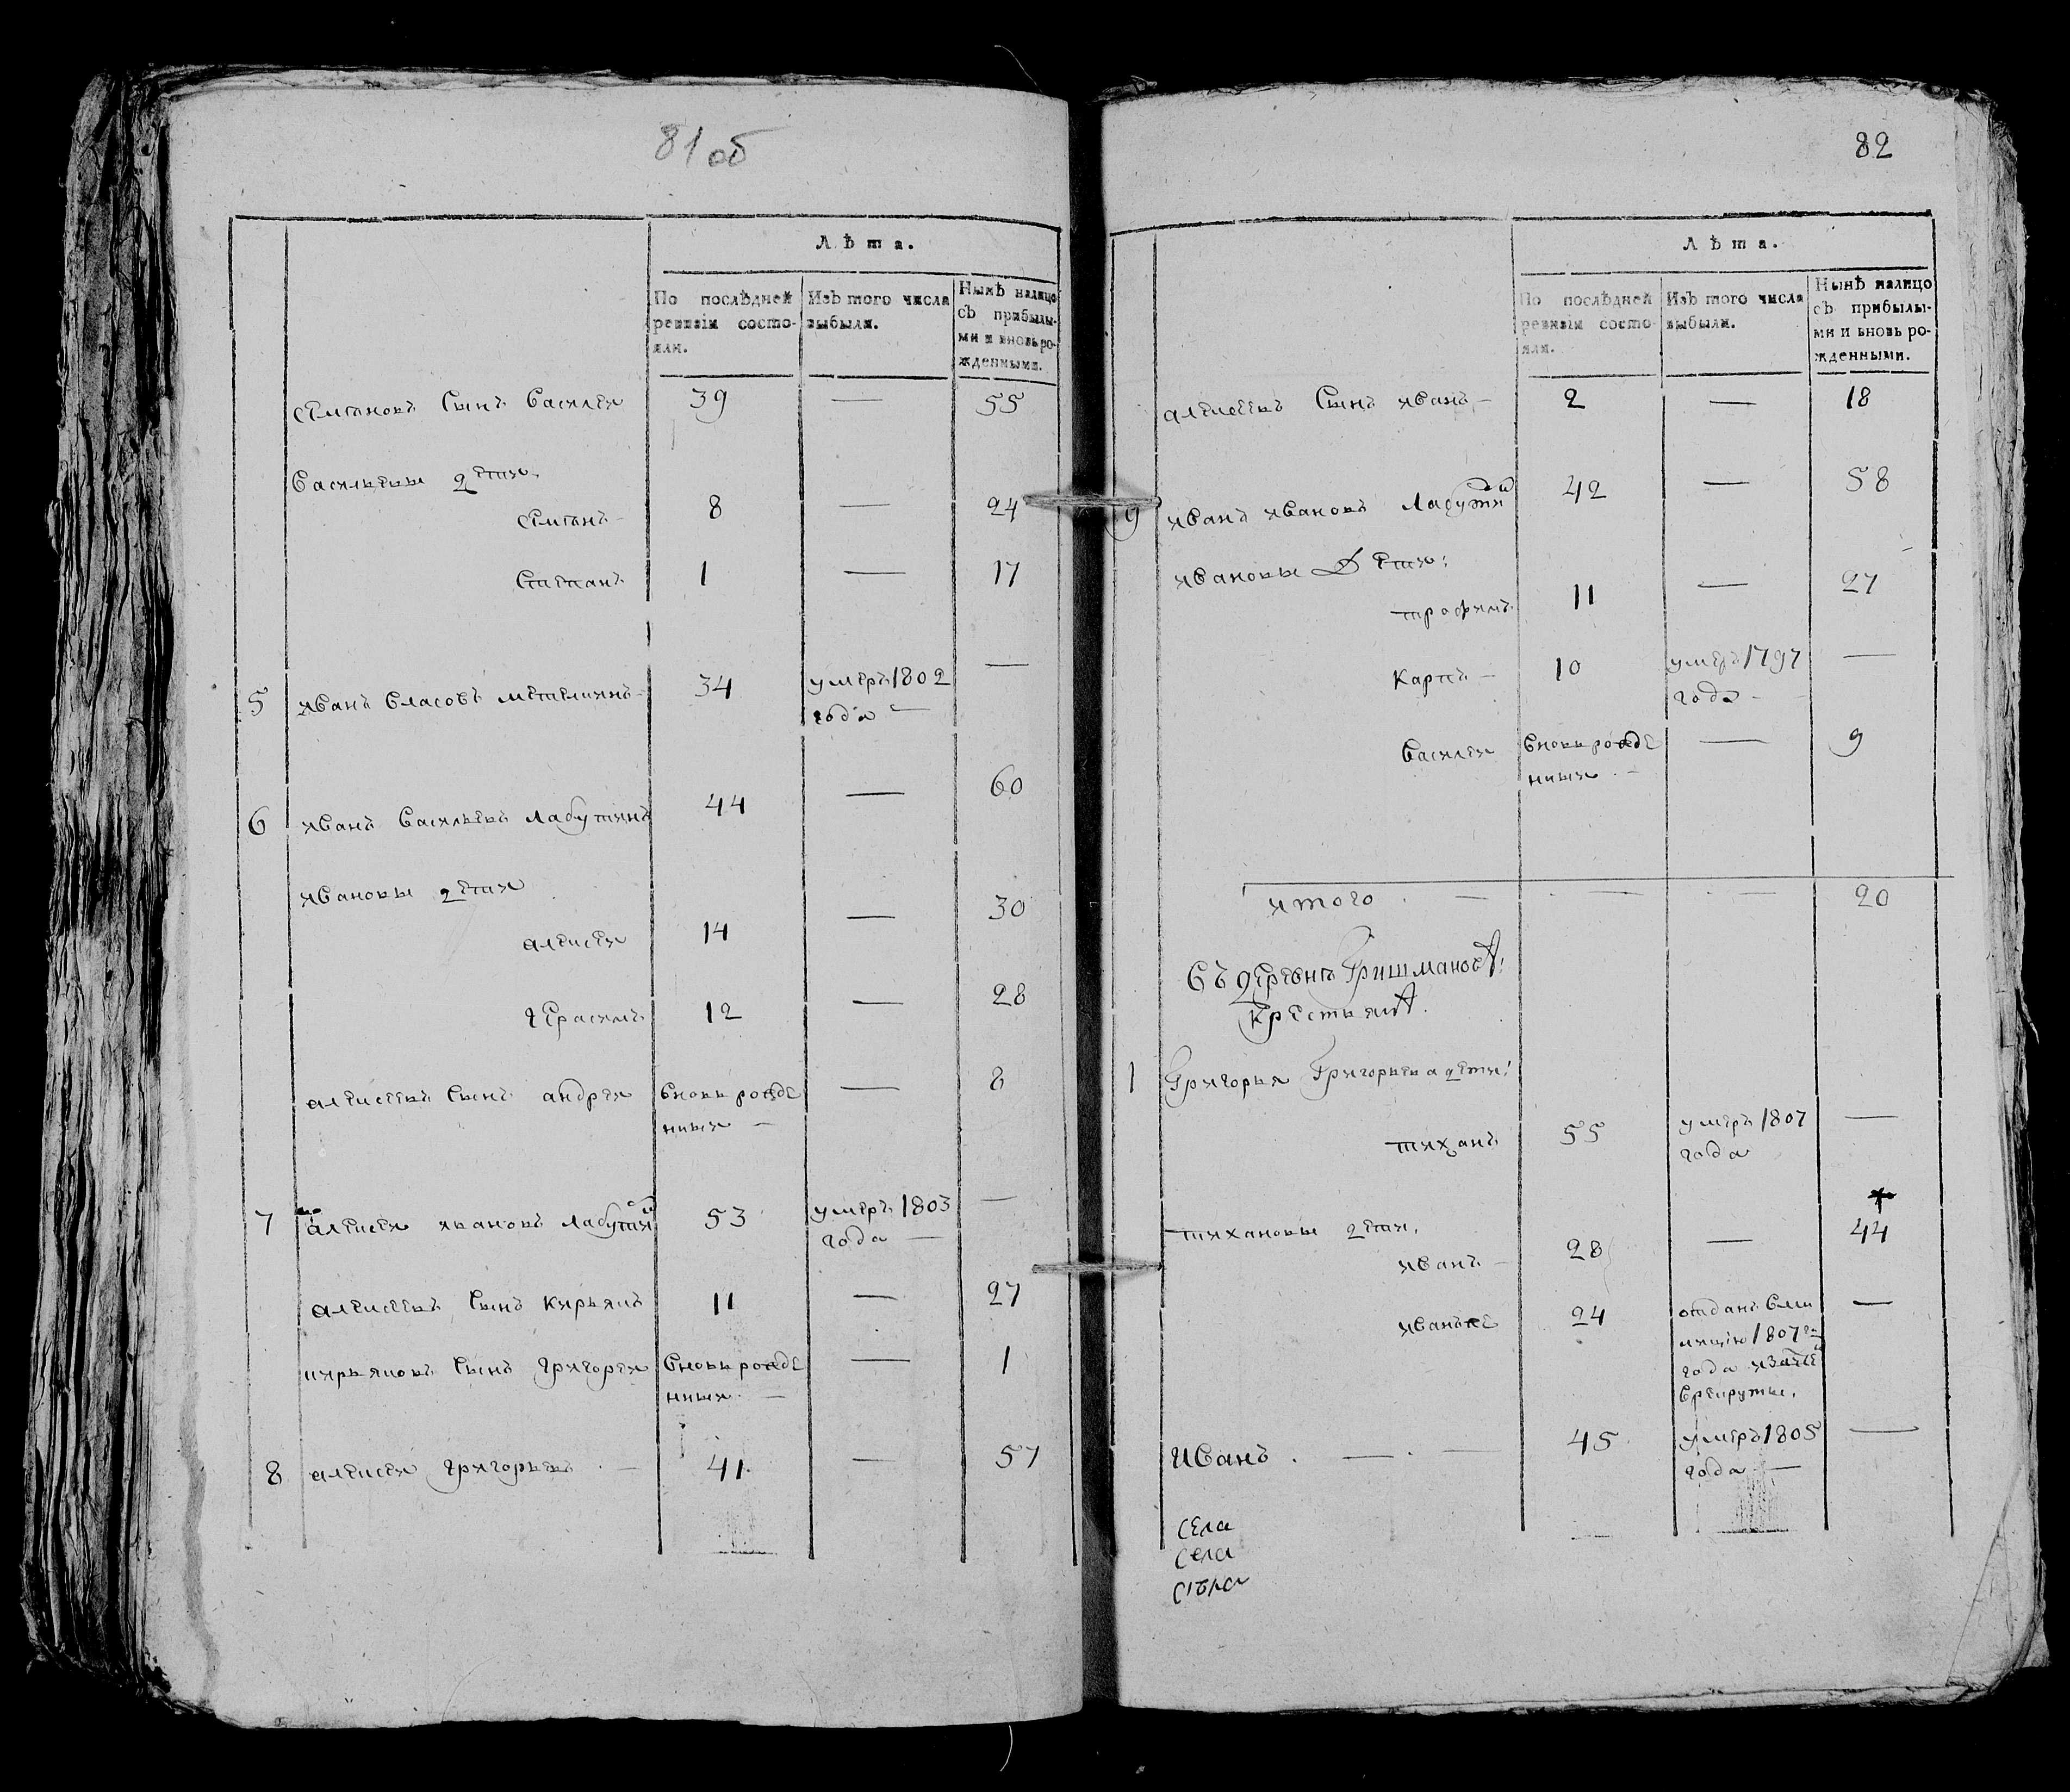 81 об
Лѣта.
По послѣдней ревизіи состояли.
Изъ того числа выбыли.
Нынѣ налицо съ прибылыми и вновь рожденными.
Симоновъ сынъ Василей 39 — 55
Васильевы дети
Симонъ 8 — 24
Степанъ 1 — 17
5 Иванъ Власовъ 34 умеръ 1802 —
года
6 Иванъ Васильевъ Лабутинъ 44 — 60
Ивановы дети
алексей 14 — 30
Герасимъ 12 — 28
алексеевъ сынъ андрей вновь рожде — 8
нный
7 алексей ивановъ Лабутин 53 умеръ 1803 —
года
алексеевъ сынъ Кирьянъ 11 — 27
кирьяновъ сынъ Григорей вновь рожде — 1
нный
8 алексей Григорьевъ 41 — 57
82
Лѣта.
По послѣдней ревизіи состояли.
Изъ того числа выбыли.
Нынѣ налицо съ прибылыми и вновь рожденными.
алексеевъ сынъ иванъ 2 — 18
9 иванъ ивановъ Лабутин 42 — 58
ивановы дети:
трофимъ 11 — 27
Карпъ 10 умеръ 1797 —
года
Василей вновь рожде — 9
нный
итого — — — 20
Въ деревнѣ Гришмановѣ:
крестьянѣ
1 Григорья Григорьева дети:
тиханъ 55 умеръ 1807 —
года
тихановы дети,
иванъ 28 — 44
иванъже 24 отданъ вми —
лицію 1807 го
года
врекруты.
Иванъ 45 умеръ 1805 —
года
села
села